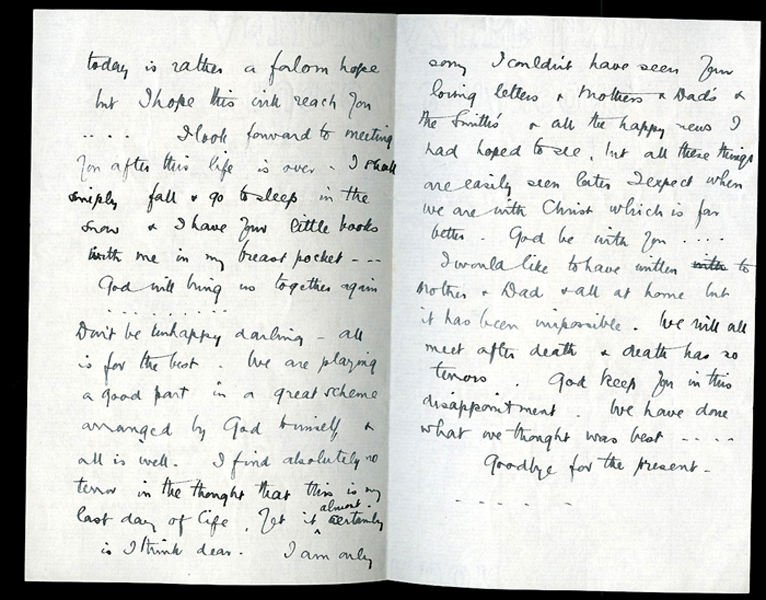 today is rather a forlorn hope
but I hope this will reach you
.... I look forward to meeting
you after this life is over - I shall
simply fall & go to sleep in the
snow & I have your little books
with me in my breast pocket ---
God will bring us together again
.........
Don't be unhappy darling - all
is for the best. We are playing
a good part in a great scheme
arranged by God himself, &
all is well. I find absolutely no
terror in the thought that this is my
last day of life, Yet it almost certainly
is I think dear. I am only
sorry I couldn't have seen your
loving letters & Mothers & Dad's &
the Smiths' & all the happy news I
had hoped to see, but all these things
are easily seen later I expect when
we are with Christ which is far
better. God be with you ....
I would like to have written with to
Mother & Dad & all at home but
it has been impossible. We will all
meet after death & death has no
terrors. God keep you in this
disappointment. We have done
what we thought was best ----
Goodbye for the present -
- - - - -